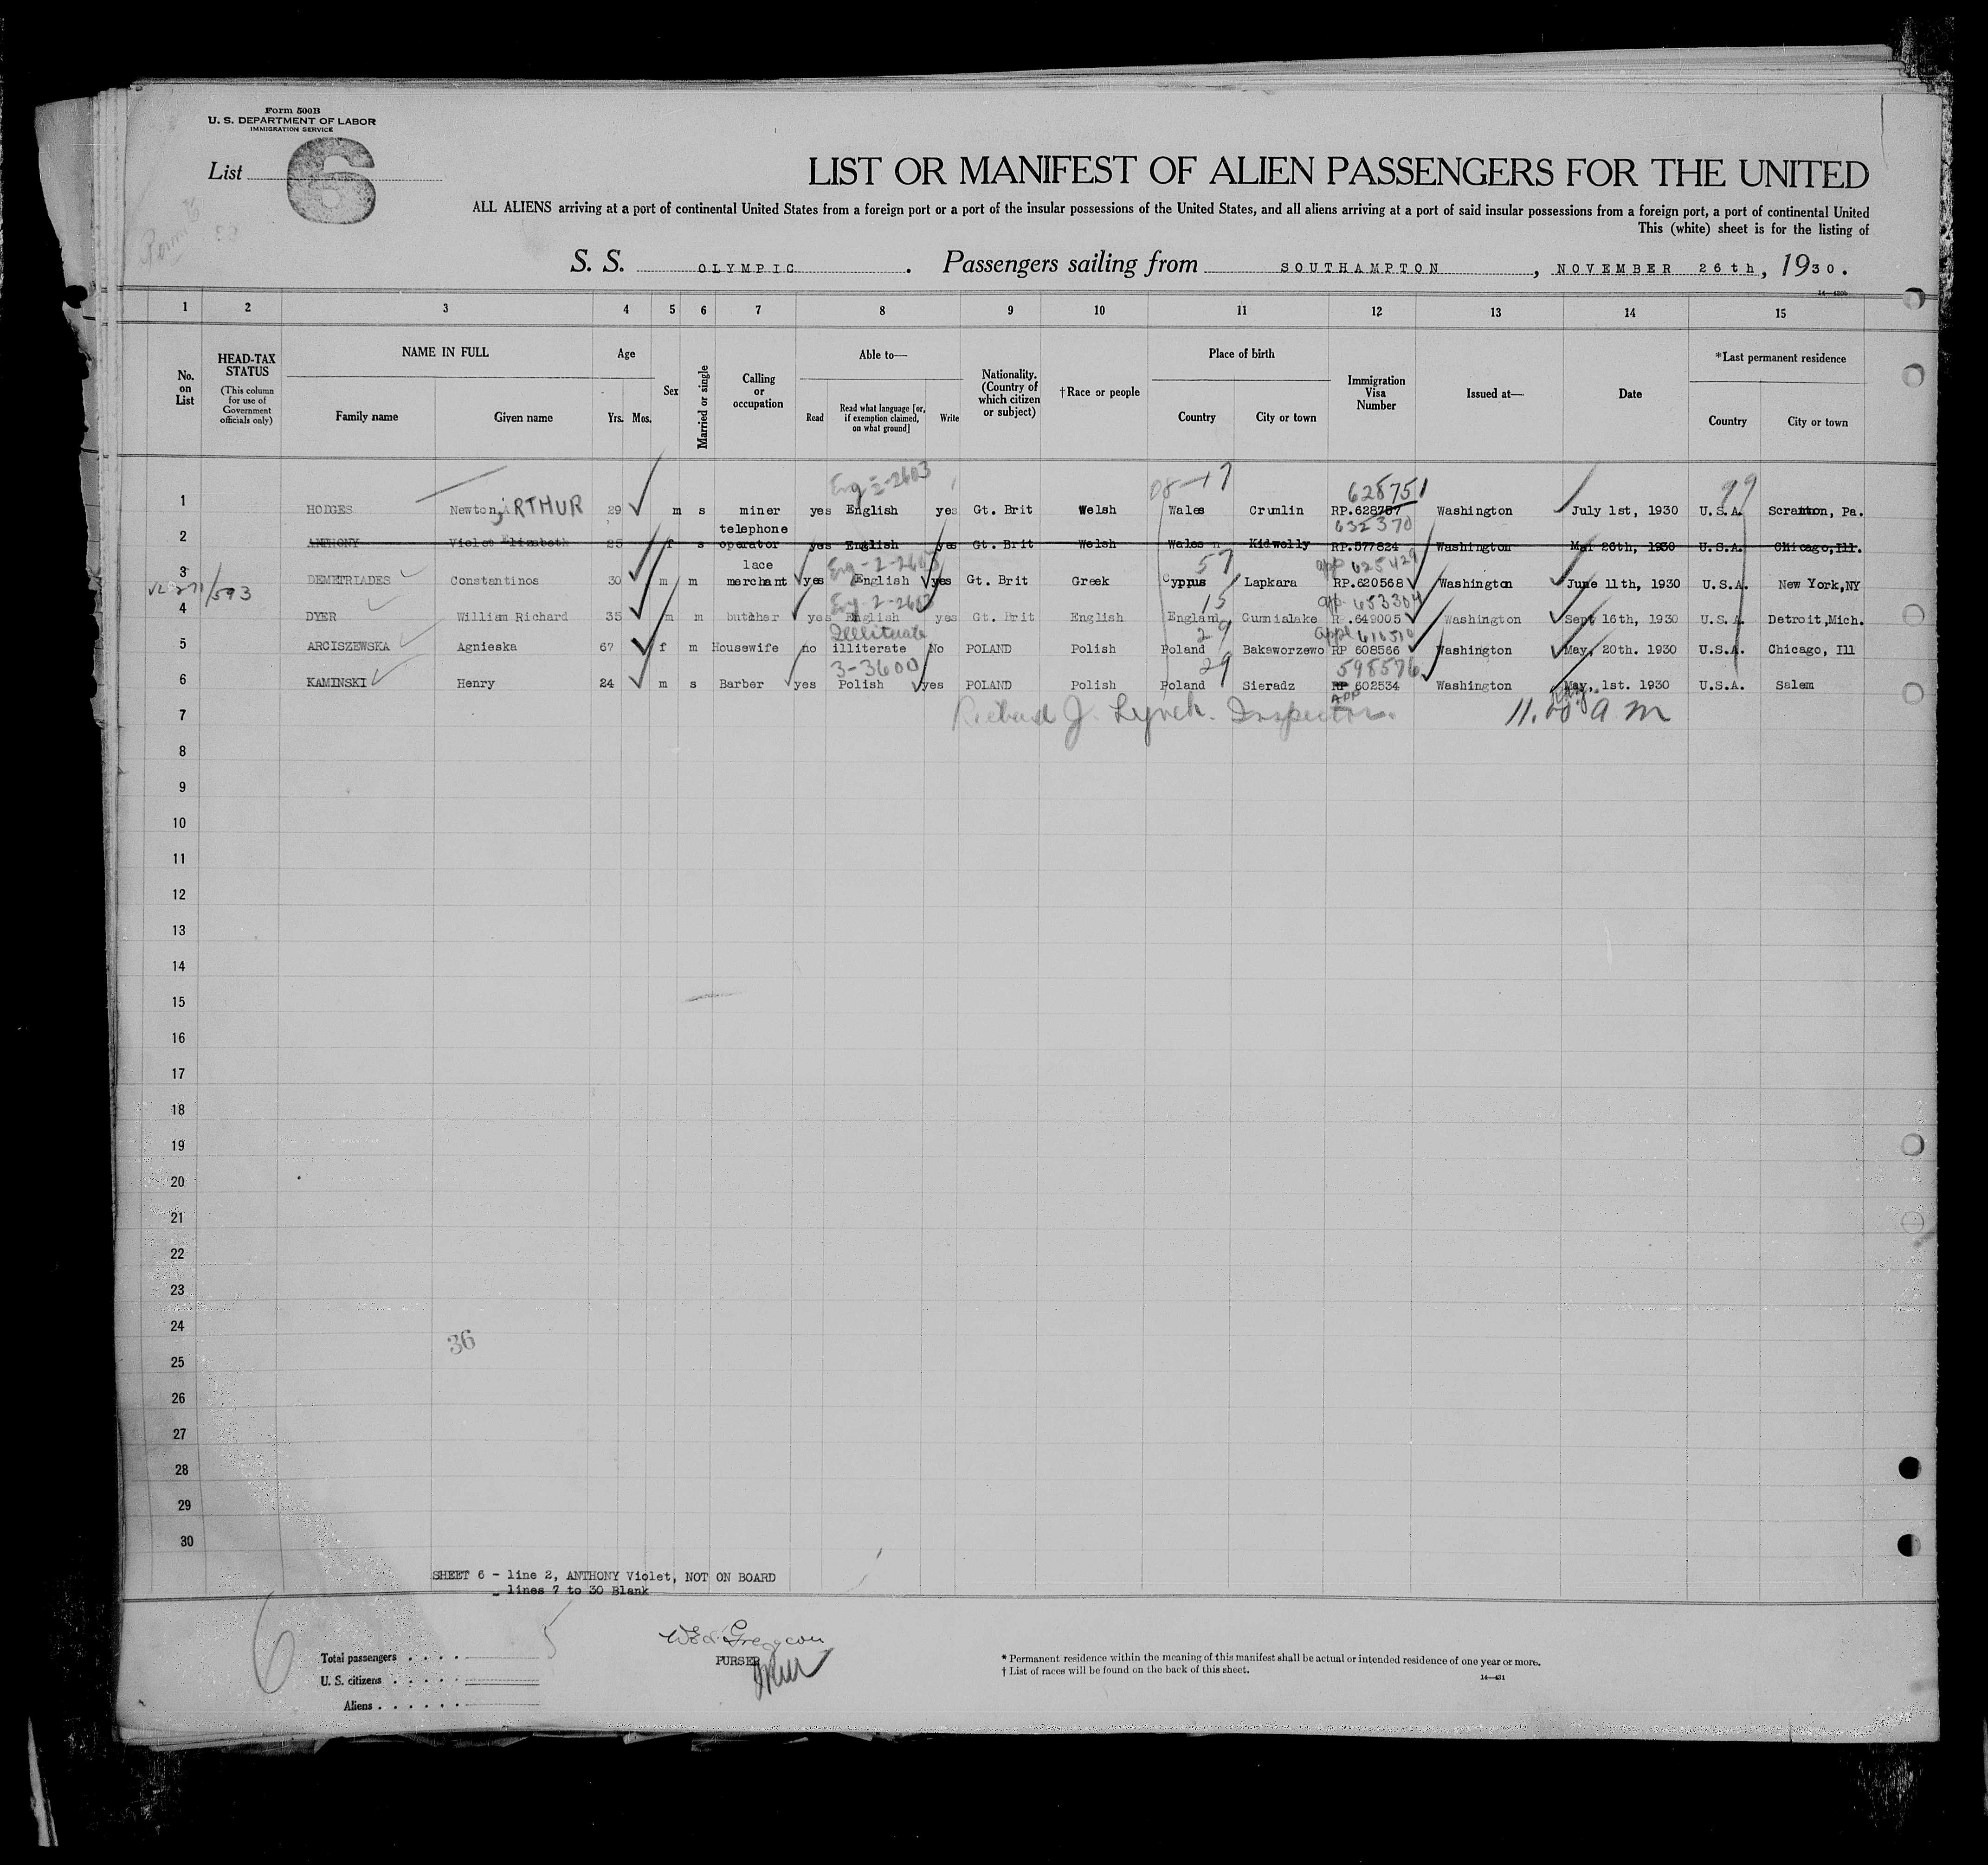 Form 500B
U. S. DEPARTMENT OF LABOR
IMMIGRATION SERVICE
List 6
LIST OR MANIFEST OF ALIEN PASSENGERS FOR THE UNITED
ALL ALIENS arriving at a port of continental United States from a foreign port or a port of the insular possessions of the United States, and all aliens arriving at a port of said insular possessions from a foreign port, a port of continental United
This (white) sheet is for the listing of
S. S. OLYMPIC. Passengers sailing from SOUTHAMPTON, NOVEMBER 26th, 1930.
1 2 3 4 5 6 7 8 9 10 11 12 13 14 15
No. on List
HEAD-TAX STATUS (This column for use of Government officials only)
NAME IN FULL
Family name Given name
Age
Yrs. Mos.
Sex
Married or single
Calling or occupation
Able to—
Read Read what language [or, if exemption claimed, on what ground] Write
Nationality. (Country of which citizen or subject)
†Race or people
Place of birth
Country City or town
Immigration Visa Number
Issued at—
Date
*Last permanent residence
Country City or town
Eng-2-2603 08-17 628751 99
1 HODGES Newton, ARTHUR 29 m s miner yes English yes Gt. Brit Welsh Wales Crumlin RP.628757 Washington July 1st, 1930 U.S.A. Scranton, Pa.
632370
2 ANTHONY Violet Elizabeth 25 f s telephone operator yes English yes Gt. Brit Welsh Wales Kidwelly RP.577824 Washington Mar 26th, 1930 U.S.A. Chicago, Ill.
Eng-2-2603 57 app 625429
3 DEMETRIADES Constantinos 30 m m lace merchant yes English yes Gt. Brit Greek Cyprus Lapkara RP.620568 Washington June 11th, 1930 U.S.A. New York,NY
12-271/593
Eng-2-2603 15 app. 653304
4 DYER William Richard 35 m m butcher yes English yes Gt. Brit English England Gunnialake RP.649005 Washington Sept 16th, 1930 U.S.A. Detroit,Mich.
Illiterate 29 appl 610510
5 ARCISZEWSKA Agnieska 67 f m Housewife no illiterate No POLAND Polish Poland Bakaworzewo RP 608566 Washington May, 20th. 1930 U.S.A. Chicago, Ill
3-3600 29 598576
6 KAMINSKI Henry 24 m s Barber yes Polish yes POLAND Polish Poland Sieradz RP 602534 Washington May, 1st. 1930 U.S.A. Salem
APP
7 Richard J. Lynch. Inspector. 11.20 a m
8
9
10
11
12
13
14
15
16
17
18
19
20
21
22
23
24
36
25
26
27
28
29
30
SHEET 6 - line 2, ANTHONY Violet, NOT ON BOARD
- lines 7 to 30 Blank
6
5
Total passengers
U. S. citizens
Aliens
PURSER
* Permanent residence within the meaning of this manifest shall be actual or intended residence of one year or more.
† List of races will be found on the back of this sheet.
14—431